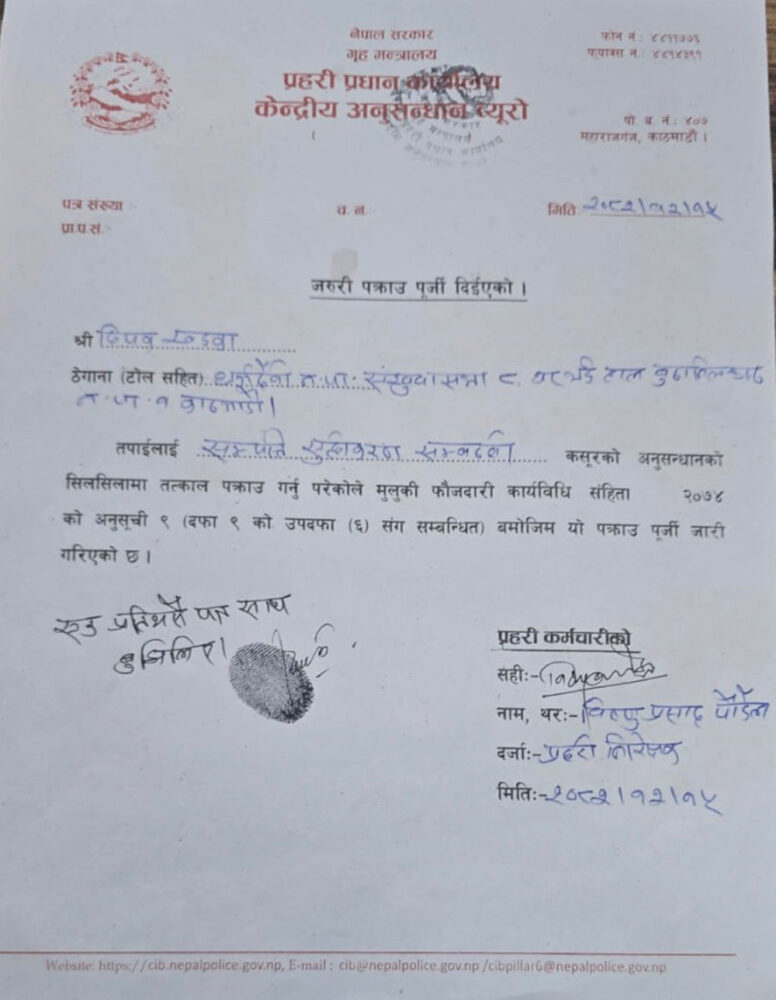 नेपाल सरकार
गृह मन्त्रालय
प्रहरी प्रधान कार्यालय
केन्द्रीय अनुसन्धान ब्यूरो
फोन नं : ४४११७७६
फ्याक्स नं :
पो. ब. नं : ४०७
महाराजगंज, काठमाडौं ।
पत्र संख्या :-
प्रा.प.सं.
च. नं.
मिति २०८२।१२।१५
जरुरी पक्राउ पूर्जी दिईएको ।
श्री दिपक
ठेगाना (टोल सहित) धर्मदेवी न.पा. संखुवासभा ८
न.पा. काठमाडौं।
तपाईलाई सम्पत्ति शुद्धिकरण सम्बन्धी कसूरको अनुसन्धानको
सिलसिलामा तत्काल पक्राउ गर्नु परेकोले मुलुकी फौजदारी कार्यविधि संहिता २०७४
को अनुसूची ९ (दफा ९ को उपदफा (६) संग सम्बन्धित) बमोजिम यो पक्राउ पूर्जी जारी
गरिएको छ ।
एउ प्रति मैले पत्र साथ
बुझिलिए।
प्रहरी कर्मचारीको
सही:-
नाम, थर:- विष्णु प्रसाद पौडेल
दर्जा:- प्रहरी निरीक्षक
मिति:- २०८२।१२।१५
Website: https://cib.nepalpolice.gov.np, E-mail : cib@nepalpolice.gov.np /cibpillar6@nepalpolice.gov.np